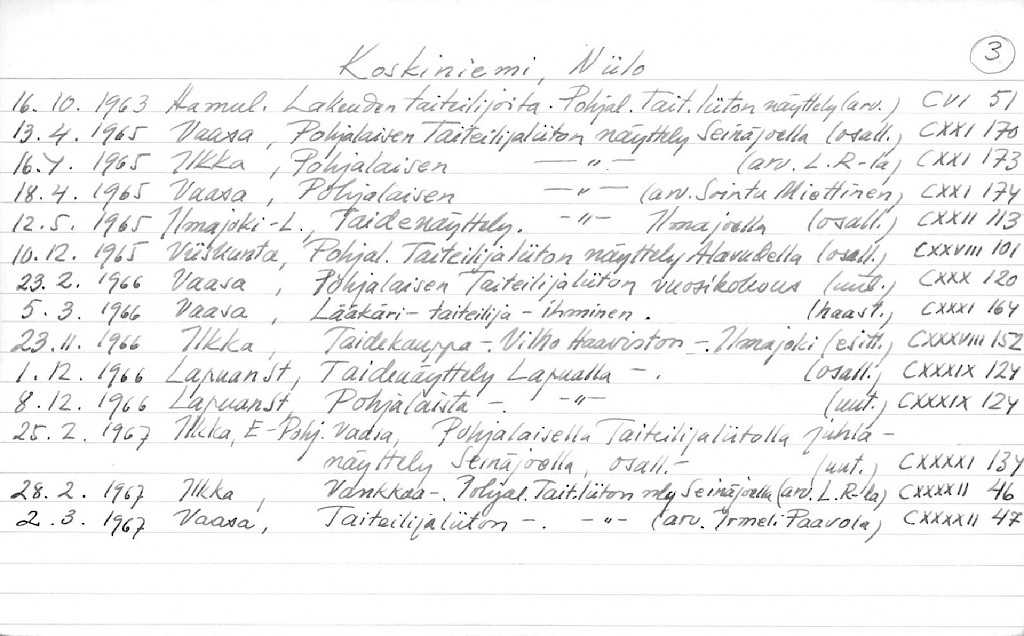 3
Koskiniemi, Niilo
16. 10. 1963 Hamul. Lakeuden taiteilijoita. Pohjal. Tait. liiton näyttely (arv.) CVI 51
13. 4. 1965 Vaasa, Pohjalaisen Taiteilijaliiton näyttely Seinäjoella (osall.) CXXI 170
16.4. 1965 Ilkka, Pohjalaisen —"— (arv. L. R-la) CXXI 173
18. 4. 1965 Vaasa, Pohjalaisen —"— (arv. Sointu Miettinen) CXXI 174
12. 5. 1965 Ilmajoki-L., Taidenäyttely. -"- Ilmajoella (osall.) CXXII 113
10. 12. 1965 Viiskunta, Pohjal. Taiteilijaliiton näyttely Alavudella (osall.) CXXVIII 101
23. 2. 1966 Vaasa, Pohjalaisen Taiteilijaliiton vuosikokous (uut.) CXXX 120
5. 3. 1966 Vaasa, Lääkäri - taiteilija - ihminen. (haast.) CXXXI 164
23. 11. 1966 Ilkka, Taidekauppa -. Vilho Haaviston -. Ilmajoki (esitt.) CXXXVIII 152
1. 12. 1966 LapuanSt, Taidenäyttely Lapualla -. (osall.) CXXXIX 124
8. 12. 1966 LapuanSt, Pohjalaista -. -"- (uut.) CXXXIX 124
25. 2. 1967 Ilkka, E-Pohj. Vaasa, Pohjalaisella Taiteilijaliitolla juhla-
näyttely Seinäjoella, osall.- (uut.) CXXXXI 134
28. 2. 1967 Ilkka, Vankkaa -. Pohjal. Tait.liiton nly Seinäjoella (arv. L. R-la) CXXXXII 46
2. 3. 1967 Vaasa, Taiteilijaliiton -. -"- (arv. Irmeli Paavola) CXXXXII 47